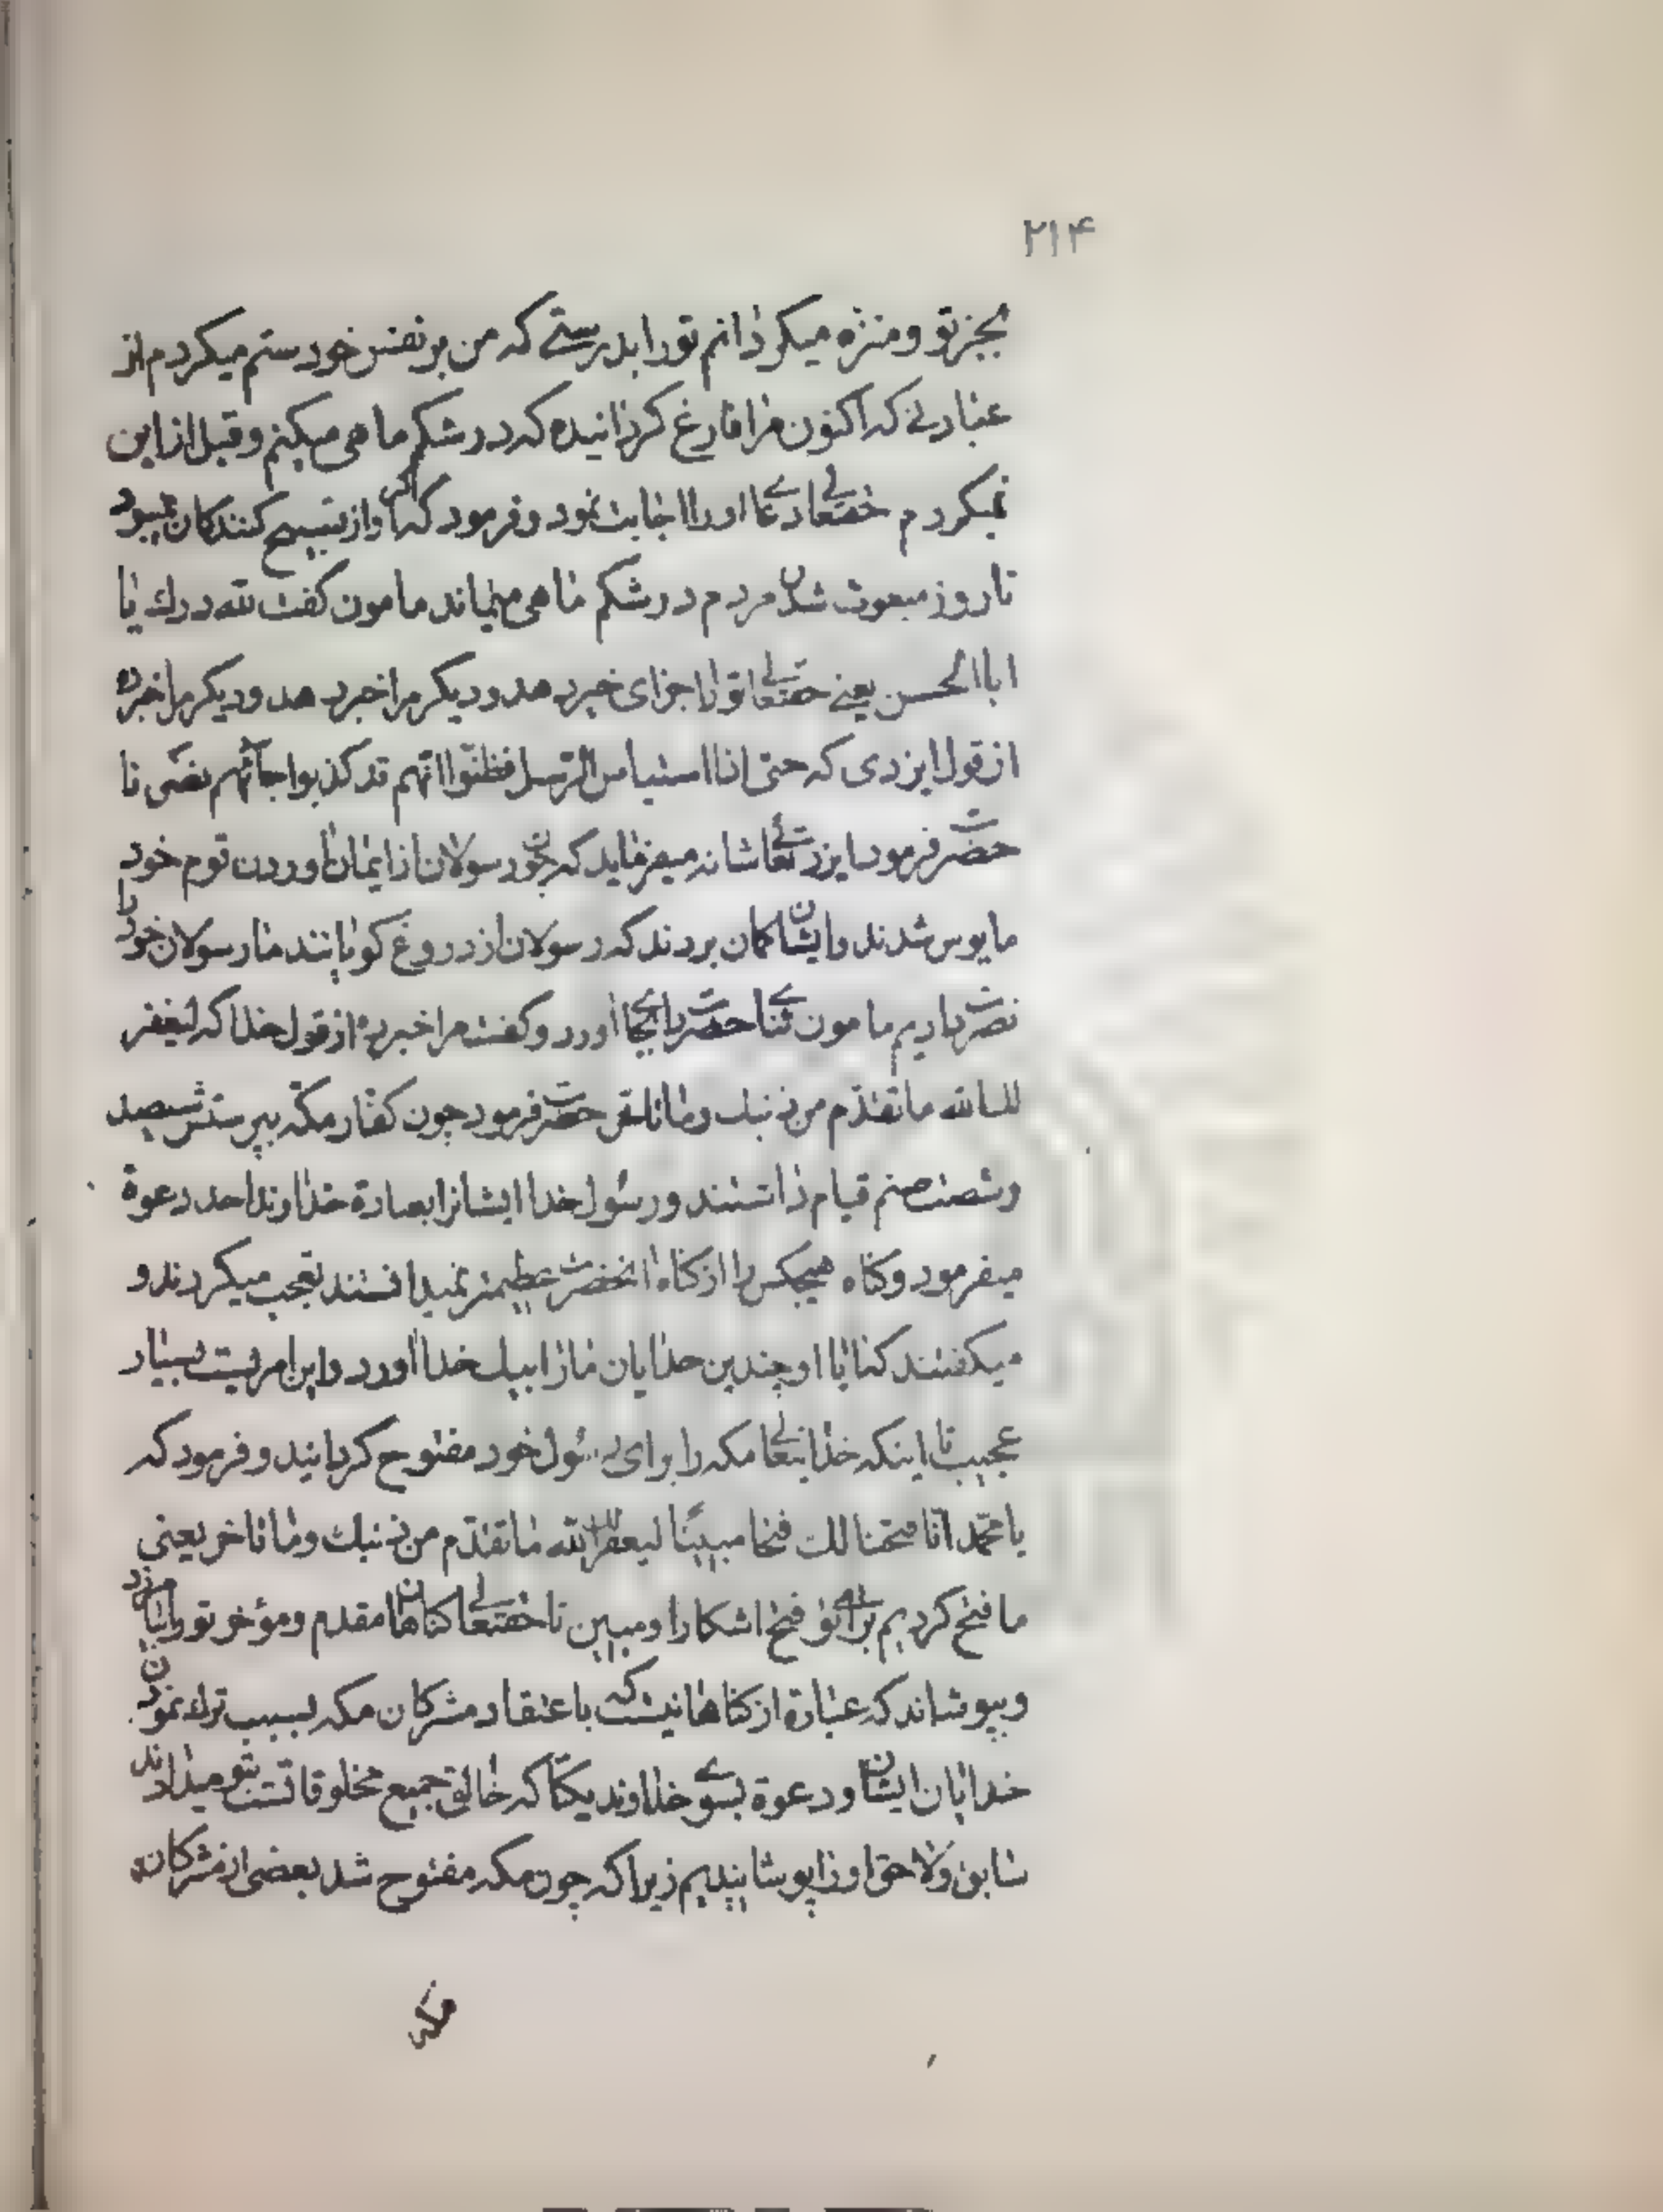 ۲۱۴
بجز تو و منزه میکردانم تو را بدرستے که من بر نفس خود ستم میکردم از
عبادتے که اکنون مرا فارغ کردانیده که در شکم ماهی میکنم و قبل از این
نمیکردم حقتعالی دعاے او را اجابت نمود و فرمود که اکر او از تسبیح کنندکان نمیبود
تا روز مبعوث شدن مردم در شکم ماهی میماند مامون کفت لله درك یا
ابا الحسن یعنے حقتعالی تو را جزای خیر دهد و دیکر مرا خبر دهد و دیکر مرا خبر ده
از قول ایزدی که حتی اذا استیاس الرسل فظنّوا انّهم قد کذبوا جائهم نصرنا
حضرت فرمود ایزد تعالی شانه میفرماید که چون رسولان از ایمان اوردن قوم خود
مایوس شدند و ایشان کمان بردند که رسولان از دروغ کویانند ما رسولان خود را
نصرت دادیم مامون ثناے حضرت را بجاے اورد و کفت مرا خبر ده از قول خدا که لیغفر
لك الله ما تقدّم من ذنبك و ما تاخر حضرت فرمود چون کفّار مکّه بپرستش سیصد
و شصت صنم قیام داشتند و رسول خدا ایشانرا بعبادة خداوند احد دعوة
میفرمود و کناه هیچکس را از کناه انحضرت عظیمتر نمیدانستند تعجب میکردند و
میکفتند که ایا او چندین خدایان ما را بیك خدا اورد و این امریست بسیار
عجیب تا اینکه خدایتعالی مکه را برای رسول خود مفتوح کردانید و فرمود که
یا محمّد انّا فتحنا لك فتحا مبینًا لیغفر لك الله ما تقدّم من ذنبك و ما تاخر یعنی
ما فتح کردیم براے تو فتح اشکارا و مبین تا حقتعالی کناهان مقدم و مؤخر تو را بیامرزد
و بپوشاند که عبارة از کناهانیست که باعتقاد مشرکان مکه بسبب ترك نمودن
خدایان ایشان و دعوة بسوے خداوند یکتا که خالق جمیع مخلوقاتست بتو میدادند
سابق و لاحق او را پوشانیدیم زیرا که چون مکه مفتوح شد بعضی از مشرکان
مکه